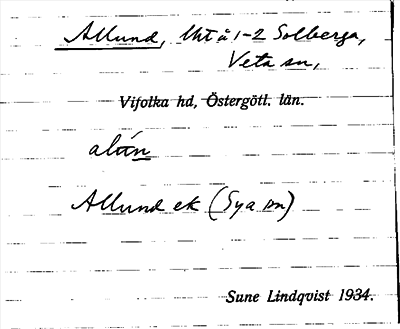 Allund, lht å 1-2 Solberga,
Veta sn,
Vifolka hd, Östergötl. län.
alún
Allund ek (Sya sn)
Sune Lindqvist 1934.